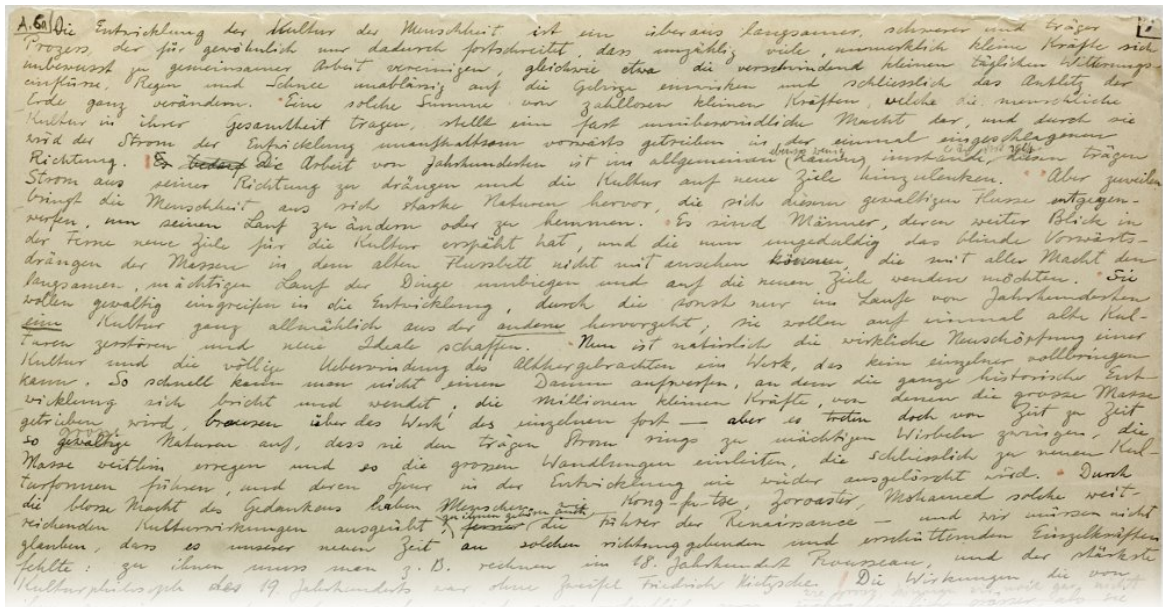 A. 6a Die Entwicklung der Kultur der Menschheit ist ein überaus langsamer, schwerer und träger
Prozess, der für gewöhnlich nur dadurch fortschreitet, dass unzählig viele, unmerklich kleine Kräfte sich
unbewusst zu gemeinsamer Arbeit vereinigen, gleichwie etwa die verschwindend kleinen täglichen Witterungs-
einflüsse, Regen und Schnee unablässig auf die Gebirge einwirken und schliesslich das Antlitz der
Erde ganz verändern. Eine solche Summe von zahllosen kleinen Kräften, welche die menschliche
Kultur in ihrer Gesamtheit tragen, stellt eine fast unüberwindliche Macht dar, und durch sie
wird der Strom der Entwicklung unaufhaltsam vorwärts getrieben in der einmal eingeschlagenen
Richtung. Es bedarf die Arbeit von Jahrhunderten ist im allgemeinen imstande, diesen trägen
Strom aus seiner Richtung zu drängen und die Kultur auf neue Ziele hinzulenken. Aber zuweilen
bringt die Menschheit aus sich starke Naturen hervor, die sich diesem gewaltigen Flusse entgegen-
werfen, um seinen Lauf zu ändern oder zu hemmen. Es sind Männer, deren weiter Blick in
der Ferne neue Ziele für die Kultur erspäht hat, und die nun ungeduldig das blinde Vorwärts-
drängen der Massen in dem alten Flussbett nicht mit ansehen können, die mit aller Macht den
langsamen, mächtigen Lauf der Dinge umbiegen und auf die neuen Ziele wenden möchten. Sie
wollen gewaltig eingreifen in die Entwicklung, durch die sonst nur im Laufe von Jahrhunderten
eine Kultur ganz allmählich aus der anderen hervorgeht, sie wollen auf einmal alte Kul-
turen zerstören und neue Ideale schaffen. Nun ist natürlich die wirkliche Neuschöpfung einer
Kultur und die völlige Ueberwindung des Althergebrachten ein Werk, das kein einzelner vollbringen
kann. So schnell kann man nicht einen Damm aufwerfen, an dem die ganze historische Ent-
wicklung sich bricht und wendet; die Millionen kleinen Kräfte, von denen die grosse Masse
getrieben wird, brausen über das Werk des einzelnen fort — aber es treten doch von Zeit zu Zeit
so gewaltige Naturen auf, dass sie den trägen Strom rings zu mächtigen Wirbeln zwingen, die
Masse weithin erregen und so die grossen Wandlungen einleiten, die schliesslich zu neuen Kul-
turformen führen, und deren Spur in der Entwicklung nie wieder ausgelöscht wird. Durch
die blosse Macht des Gedankens haben Menschen Kong-fu-tse, Zoroaster, Mohamed solche weit-
reichenden Kulturwirkungen ausgeübt, zu ihnen gehören auch ferner die Führer der Renaissance — und wir müssen nicht
glauben, dass es unserer neuen Zeit an solchen richtunggebenden und erschütternden Einzelkräften
fehlte: zu ihnen muss man z. B. rechnen im 18. Jahrhundert Rousseau, und der stärkste
Kulturphilosoph des 19. Jahrhunderts war ohne Zweifel Friedrich Nietzsche. Die Wirkungen, die von